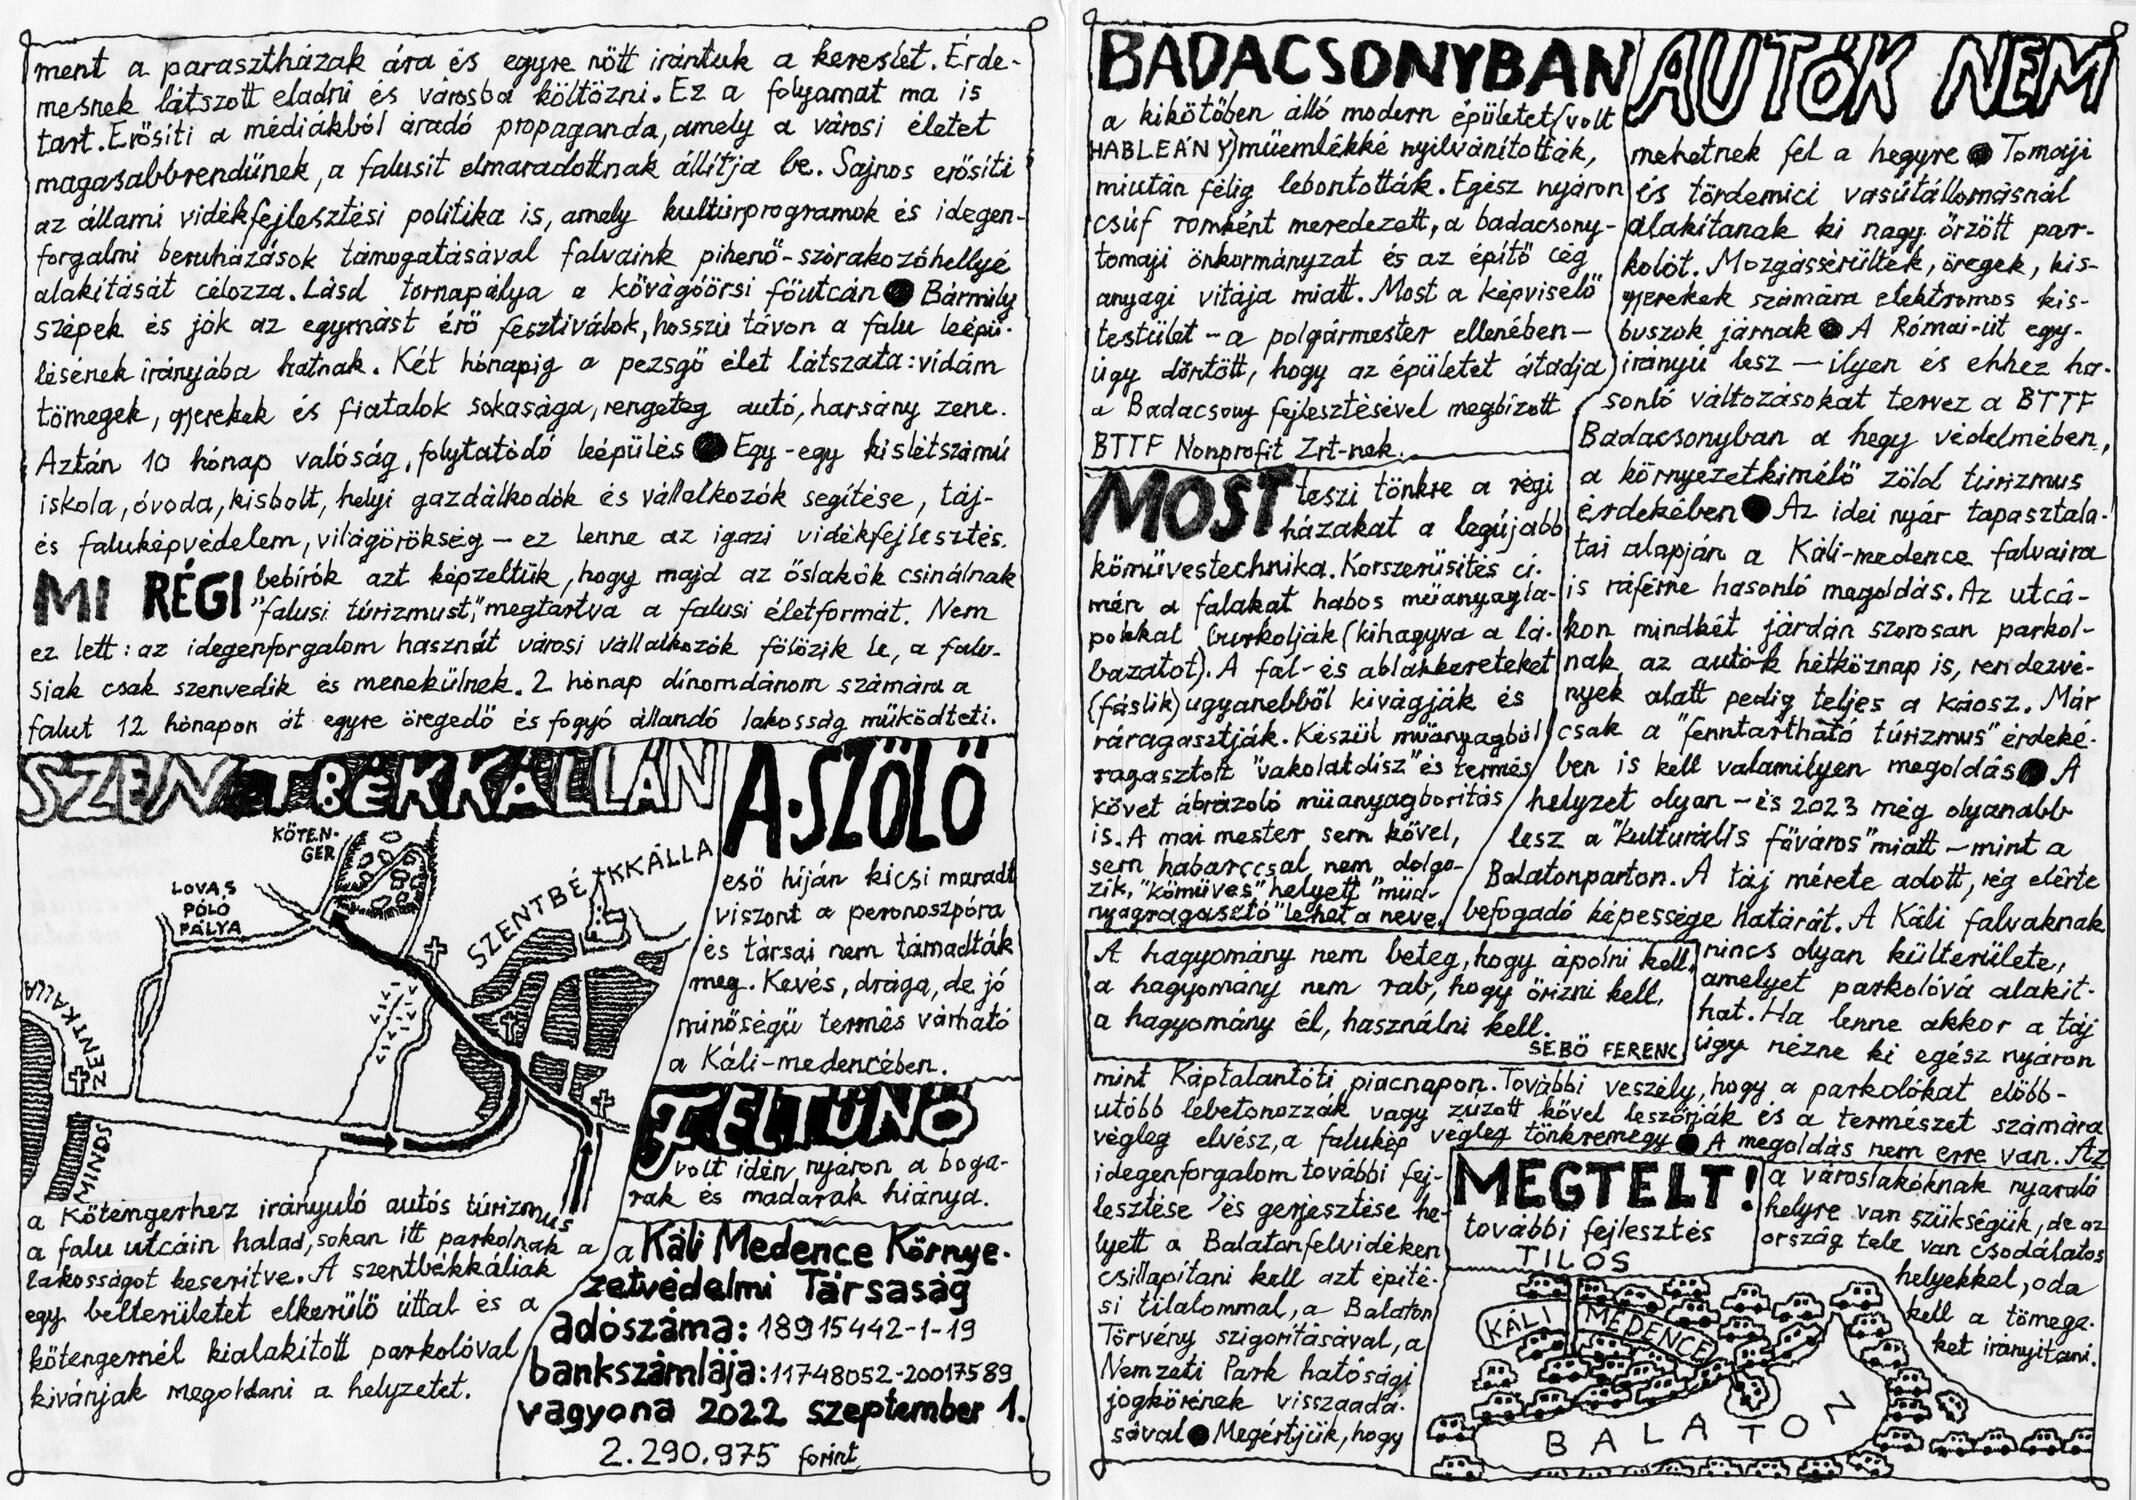 ment a parasztházak ára és egyre nőtt irántuk a kereslet. Érde-
mesnek látszott eladni és városba költözni. Ez a folyamat ma is
tart. Erősíti a médiákból áradó propaganda, amely a városi életet
magasabbrendűnek, a falusit elmaradottnak állítja be. Sajnos erősíti
az állami vidékfejlesztési politika is, amely kultúrprogramok és idegen-
forgalmi beruházások támogatásával falvaink pihenő-szórakozóhellyé
alakítását célozza. Lásd tornapálya a kővágóörsi főutcán ● Bármily
szépek és jók az egymást érő fesztiválok, hosszú távon a falu leépü-
lésének irányába hatnak. Két hónapig a pezsgő élet látszata: vidám
tömegek, gyerekek és fiatalok sokasága, rengeteg autó, harsány zene.
Aztán 10 hónap valóság, folytatódó leépülés ● Egy-egy kislétszámú
iskola, óvoda, kisbolt, helyi gazdálkodók és vállalkozók segítése, táj-
és faluképvédelem, világörökség — ez lenne az igazi vidékfejlesztés.
MI RÉGI bebírók azt képzeltük, hogy majd az őslakók csinálnak
"falusi túrizmust," megtartva a falusi életformát. Nem
ez lett: az idegenforgalom hasznát városi vállalkozók fölözik le, a falu-
siak csak szenvedik és menekülnek. 2 hónap dínomdánom számára a
falut 12 hónapon át egyre öregedő és fogyó állandó lakosság működteti.
SZENTBÉKKÁLLÁN
KŐTEN-
GER
LOVAS
PÓLÓ
PÁLYA
SZENTBÉKKÁLLA
SZENTKÁLLA
MINDS
a Kőtengerhez irányuló autós túrizmus
a falu utcáin halad, sokan itt parkolnak a
lakosságot keserítve. A szentbékkáliak
egy belterületet elkerülő úttal és a
kőtengernél kialakított parkolóval
kívánjak megoldani a helyzetet.
A SZŐLŐ
eső híján kicsi maradt
viszont a peronoszpóra
és társai nem támadták
meg. Kevés, drága, de jó
minőségű termés várható
a Káli-medencében.
FELTŰNŐ
volt idén nyáron a boga-
rak és madarak hiánya.
a Káli Medence Környe-
zetvédelmi Társaság
adószáma: 18915442-1-19
bankszámlája: 11748052-20017589
vagyona 2022 szeptember 1.
2.290.975 forint
BADACSONYBAN
a kikötőben álló modern épületet (volt
HABLEÁNY) műemlékké nyilvánították,
miután félig lebontották. Egész nyáron
csúf romként meredezett, a badacsony-
tomaji önkormányzat és az építő cég
anyagi vitája miatt. Most a képviselő
testület — a polgármester ellenében —
úgy döntött, hogy az épületet átadja
a Badacsony fejlesztésével megbízott
BTTF Nonprofit Zrt-nek.
MOST teszi tönkre a régi
házakat a legújabb
kőművestechnika. Korszerűsítés cí-
mén a falakat habos műanyagla-
pokkal burkolják (kihagyva a lá-
bazatot). A fal- és ablakkereteket
(fáslik) ugyanebből kivágják és
ráragasztják. Készül műanyagból
ragasztott "vakolatdísz" és termés
követ ábrázoló műanyagborítás
is. A mai mester sem kővel,
sem habarccsal nem dolgo-
zik, "kőműves" helyett "műa-
nyagragasztó" lehet a neve.
A hagyomány nem beteg, hogy ápolni kell,
a hagyomány nem rab, hogy őrizni kell,
a hagyomány él, használni kell.
SEBŐ FERENC
AUTÓK NEM
mehetnek fel a hegyre ● Tomaji
és tördemici vasútállomásnál
alakítanak ki nagy őrzött par-
kolót. Mozgássérültek, öregek, kis-
gyerekek számára elektromos kis-
buszok járnak ● A Római-út egy-
irányú lesz — ilyen és ehhez ha-
sonló változásokat tervez a BTTF
Badacsonyban a hegy védelmében,
a környezetkímélő zöld túrizmus
érdekében ● Az idei nyár tapasztala-
tai alapján a Káli-medence falvaira
is ráférne hasonló megoldás. Az utcá-
kon mindkét járdán szorosan parkol-
nak az autók hétköznap is, rendezvé-
nyek alatt pedig teljes a káosz. Már
csak a "fenntartható túrizmus" érdeké-
ben is kell valamilyen megoldás ● A
helyzet olyan — és 2023 még olyanabb
lesz a "kulturális főváros" miatt — mint a
Balatonparton. A táj mérete adott, rég elérte
befogadó képessége határát. A Káli falvaknak
nincs olyan külterülete,
amelyet parkolóvá alakít-
hat. Ha lenne akkor a táj
úgy nézne ki egész nyáron
mint Káptalantóti piacnapon. További veszély, hogy a parkolókat előbb-
utóbb lebetonozzák vagy zúzott kővel leszórják és a természet számára
végleg elvész, a falukép végleg tönkremegy ● A megoldás nem erre van. Az
idegenforgalom további fej-
lesztése és gerjesztése he-
lyett a Balatonfelvidéken
csillapítani kell azt építé-
si tilalommal, a Balaton
Törvény szigorításával, a
Nemzeti Park hatósági
jogkörének visszaadá-
sával ● Megértjük, hogy
a városlakóknak nyaraló
helyre van szükségük, de az
ország tele van csodálatos
helyekkel, oda
kell a tömege-
ket irányítani.
MEGTELT!
további fejlesztés
TILOS
KÁLI MEDENCE
BALATON